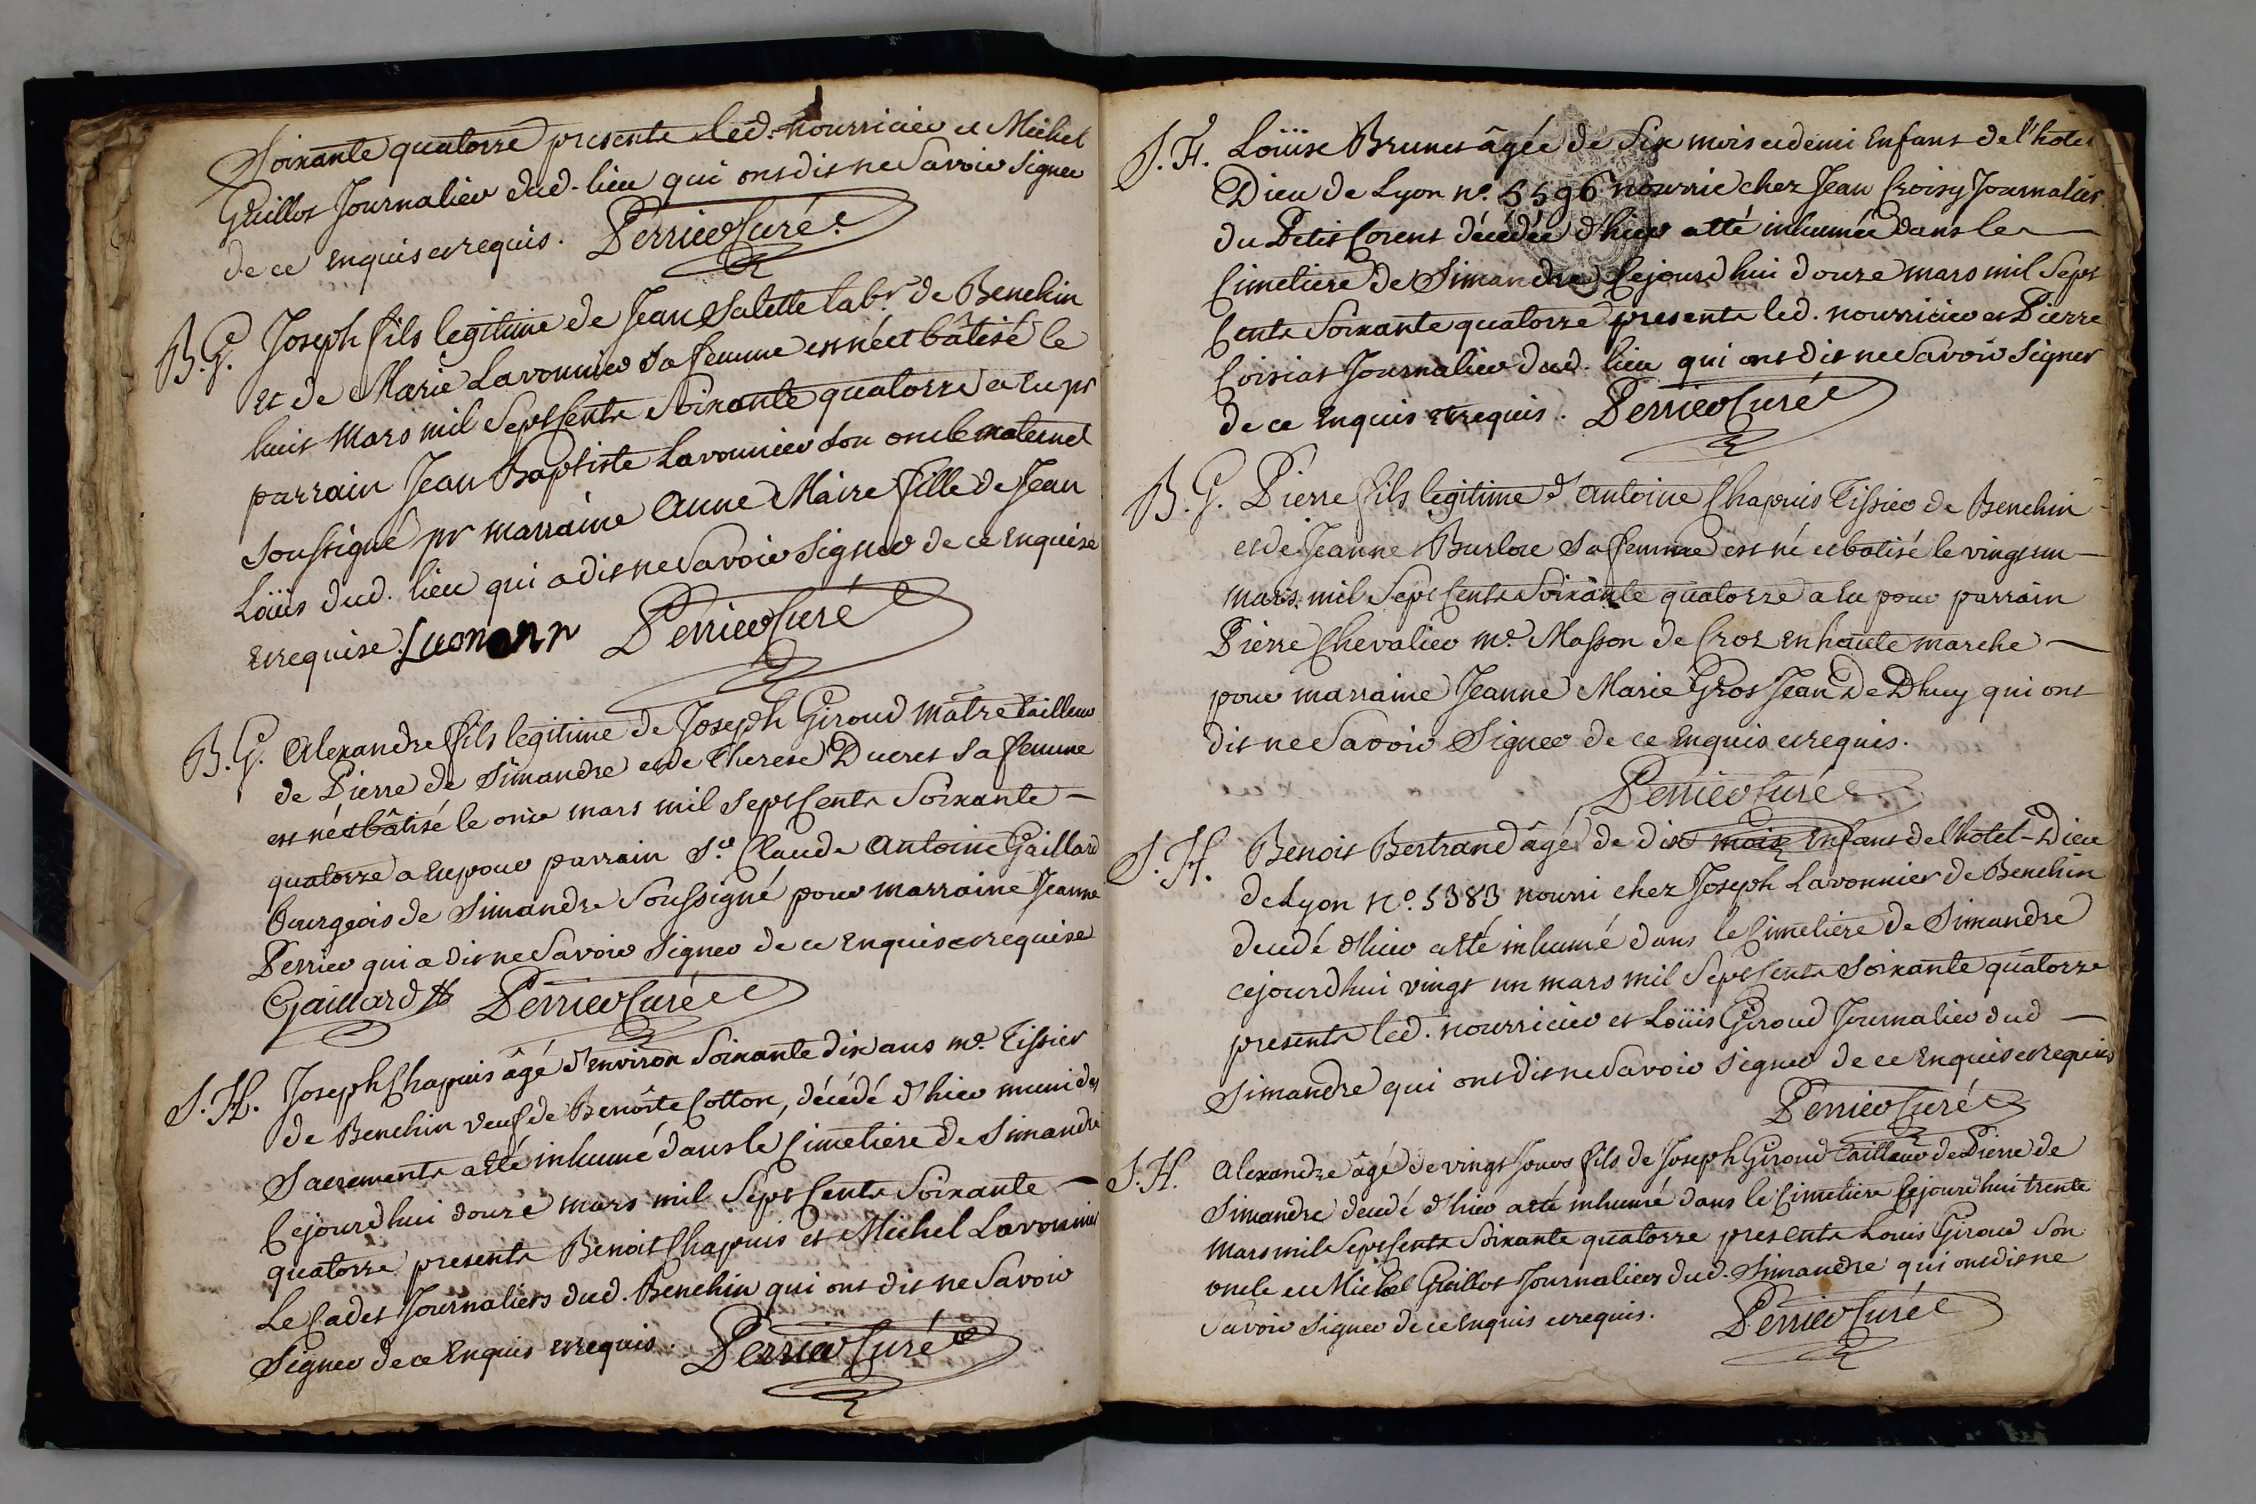 Soixante quatorze presents led. nourricier et Michel
Guillot Journalier dud. lieu qui ont dit ne Savoir Signer
de ce enquis et requis. Perrier Curé
B.G. Joseph fils legitime de Jean Salette labr de Benchin
et de Marie Lavonnier Sa femme est né et bâtisé le
huit Mars mil Sept Cents Soixante quatorze a eu pr
parrain Jean Baptiste Lavonnier Son oncle maternel
Soussigné pr marraine Anne Maire fille de Jean
Loüis dud. lieu qui a dit ne Savoir Signer de ce Enquise
et requise. Perrier Curé
B.G. Alexandre fils legitime de Joseph Giroud Matre tailleur
de Pierre de Simandre et de Therese Ducret Sa femme
est né et bâtisé le onze mars mil Sept Cents Soixante
quatorze a eu pour parrain Sr Claude Antoine Gaillard
bourgeois de Simandre Soussigné pour marraine Jeanne
Perrier qui a dit ne Savoir Signer de ce Enquise et requise
Gaillard Perrier Curé
S.H. Joseph Chapuis âgé d'environ Soixante dix ans me. Tissier
de Benchin veuf de Benoîte Cotton, décédé d'hier muni des
Sacrements a eté inhumé dans le Cimetiere de Simandre
Cejourd'hui douze mars mil Sept Cents Soixante
quatorze presents Benoit Chapuis et Michel Lavonnier
Le Cadet Journaliers dud. Benchin qui ont dit ne Savoir
Signer de ce Enquis et requis. Perrier Curé
S.H. Loüise Brunet âgée de Six mois et demi Enfant de l'hotel
Dieu de Lyon no. 5596 nourrie chez Jean Croisy Journalier
du Petit Corent décédée d'hier a eté inhumée dans le
Cimetiere de Simandre Cejourd'hui douze mars mil Sept
Cents Soixante quatorze presents led. nourricier et Pierre
Coisiat Journalier dud. lieu qui ont dit ne Savoir Signer
de ce Enquis et requis. Perrier Curé
B.G. Pierre fils legitime d'Antoine Chapuis Tissier de Benchin
et de Jeanne Sa femme est né et batisé le vingt un
mars mil Sept Cents Soixante quatorze a eu pour parrain
Pierre Chevalier me. Masson de Croz en haute marche
pour marraine Jeanne Marie Gros Jean De Dhuy qui ont
dit ne Savoir Signer de ce Enquis et requis.
Perrier Curé
S.H. Benoit Bertrand âgé de dix mois Enfant de l'hotel-Dieu
de Lyon no. 5383 nourri chez Joseph Lavonnier de Benchin
decedé d'hier a eté inhumé dans le Cimetiere de Simandre
cejourd'hui vingt un mars mil Sept Cents Soixante quatorze
presents led. nourricier et Loüis Giroud Journalier dud
Simandre qui ont dit ne Savoir Signer de ce Enquis et requis
Perrier Curé
S.H. Alexandre âgé de vingt Jours fils de Joseph Giroud tailleur de Pierre de
Simandre decedé d'hier a eté inhumé dans le Cimetiere Cejourd'hui trente
Mars mil Sept Cents Soixante quatorze presents Louis Giroud Son
oncle et Michel Guillot Journaliers dud. Simandre qui ont dit ne
Savoir Signer de ce Enquis et requis. Perrier Curé